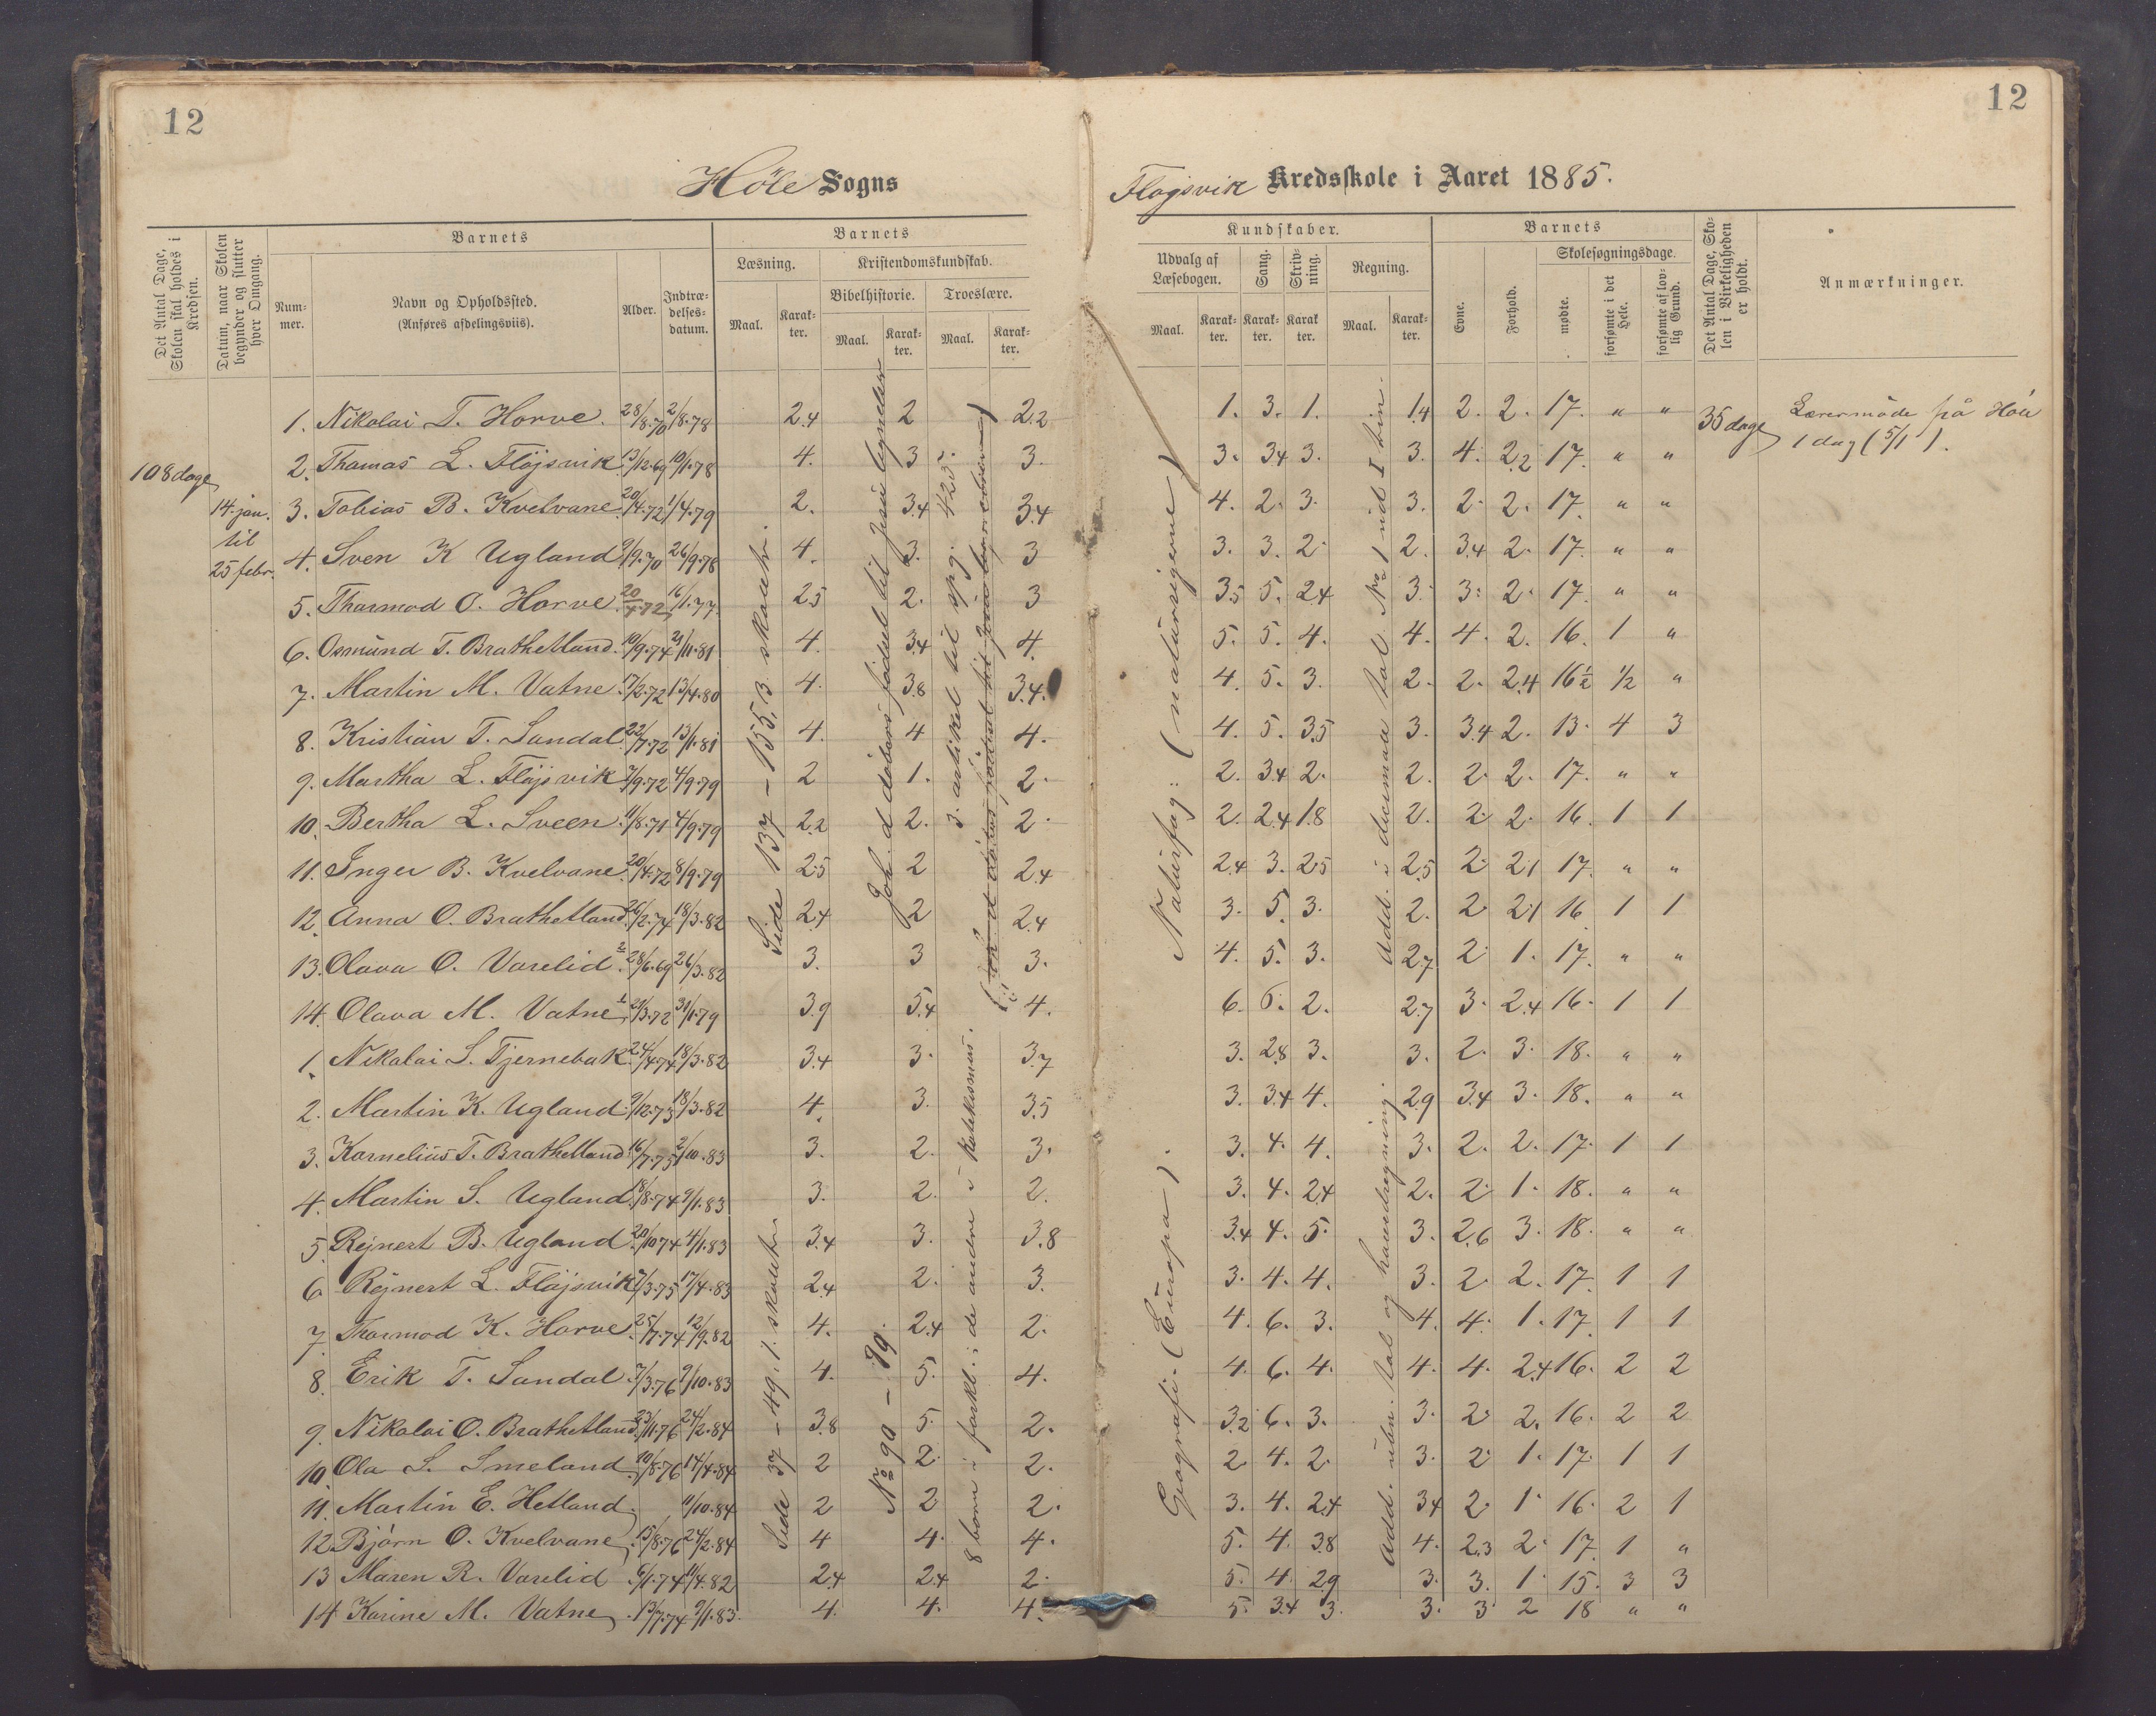 12
12
Höle Sogns
Fløjsvik Kredsskole i Aaret 1885.
Det Antal Dage, Skolen skal holdes i Kredsen.
Datum, naar Skolen begynder og slutter hver Omgang.
Barnets
Nummer.
Navn og Opholdssted.
(Anføres afdelingsviis).
Alder.
Indtrædelsesdatum.
Barnets
Læsning.
Maal.
Karakter.
Kristendomskundskab.
Bibelhistorie.
Maal.
Karakter.
Troeslære.
Maal.
Karakter.
Kundskaber.
Udvalg af Læsebogen.
Maal.
Karakter.
Sang.
Karakter.
Skrivning.
Karakter.
Regning.
Maal.
Karakter.
Barnets
Evne.
Forhold.
Skolesøgningsdage.
mødte.
forsømte i det Hele.
forsømte af lovlig Grund.
Det Antal Dage, Skolen i Virkeligheden er holdt.
Anmærkninger.
108 dage
14. jan. til 25 febr.
35 dage
Lærermøde på Höle
1 dag (5/1).
Side 137 – 155, 3. skoletr.
Joh. d døbers fødsel til Jesu lignelser
3. artikel til spg. 425.
Naturfag: (naturrigerne)
1. Nikolai T. Horve. 28/8.70 2/8.78 2.4 2 2.2 1. 3. 1. 1.4 2. 2. 17. " "
2. Thomas L. Fløjsvik 13/12.69 10/1.78 4. 3 3. 3. 3.4 3. 3. 4. 2.2 17. " "
3. Tobias B. Kvelvane 20/4.72 1/4.79 2. 3.4 3.4 4. 2. 3. 3. 2. 2. 17. " "
4. Sven K Ugland 9/9.70 26/9.78 4. 3. 3 3. 3. 2. 2. 3.4 2. 17. " "
5. Thormod O. Horve 20/4.72 16/1.77. 2.5 2. 3 3.5 5. 2.4 3. 3. 2. 17. " "
6. Osmund T. Brathetland. 19/9.74 21/11.81 4. 3.4 4. 5. 5. 4. 4. 4. 2. 16. 1 "
7. Martin M. Vatne. 17/2.72 13/4.80 4. 3.8 3.4. 4. 5. 3. 2. 2. 2.4 16½ ½ "
8. Kristian T. Sandal. 22/7.72 13/1.81 4. 4 4. 4. 5. 3.5 3. 3.4 2. 13. 4 3
9. Martha L. Fløjsvik 7/9.72 4/9.79 2 1. 2. 2. 3.4 2. 2. 2. 2. 17. " "
10. Bertha L. Sveen. 11/8.71 4/9.79 2.2 2. 2. 2. 2.4 1.8 2. 2. 2. 16. 1 1
11. Inger B. Kvelvane. 20/4.72 8/9.79 2.5 2 2.4 2.4 3. 2.5 2.5 2. 2.1 17. " "
12. Anna O. Brathetland. 26/2.74 18/3.82 2.4 2 2.4 3. 5. 3. 2. 2. 2.1 16 1 1
13. Olava O. Varelid. 28/6.69 26/3.82 3. 3 3. 4. 5. 3. 2.7 2. 1. 17. " "
14. Olava M. Vatne 21/3.72 31/1.79 3.9 5.4 4. 6. 6. 2. 2.7 3. 2.4 16. 1 1
Side 37 – 49. 1. skoletr.
No 90 – 99.
8 børn i forkl.; de andre i katekismus.
Geografi. (Europa).
1. Nikolai S. Tjernebak 24/4.74 18/3.82 3.4 3. 3.7 3. 2.8 3. 3. 2. 3. 18. " "
2. Martin K. Ugland. 9/12.73 18/3.82 4. 3. 3.5 3. 3.4 4. 2.9 3.4 3. 18. " "
3. Kornelius T. Brathetland. 16/7.75 2/10.83 3. 2. 3. 3. 4. 4. 3. 2. 2. 17. 1 1
4. Martin S. Ugland. 18/8.74 9/1.83 3. 2. 2. 3. 4. 2.4 2. 2. 1. 18. " "
5 Rejnert B. Ugland. 20/10 74 4/1.83 3.4 3. 3.8 3.4 4. 5. 3. 2.6 3. 18. " "
6 Rejnert L. Fløjsvik 7/3.75 17/4.83 2.4 2. 3. 3. 4. 4. 3. 2. 2. 17. 1 1
7. Thormod K. Horve. 25/7.74 12/9.82 4. 2.4 2. 4. 6. 3. 4. 4. 1. 17. 1 1
8. Erik T. Sandal. 7/3.76 9/10.83 4. 5. 4. 4. 6. 4. 4. 4. 2.4 16. 2 2
9. Nikolai O. Brathetland. 23/11.76 24/2.84 3.8 5. 2. 3.2 6. 3. 3. 2. 2. 16. 2 2
10. Ola S. Smeland. 10/8.76 14/4.84 2 2. 2. 2 4. 2. 3. 2 1. 17. 1 1
11. Martin E. Hetland. 11/10.84 2 2 2. 3. 4. 2.4 3.4 2. 1. 16. 2 1
12. Bjørn O. Kvelvane 15/8.76 24/2.84 4 4. 4. 5. 4. 3.8 4. 2.3 2. 17. 1 "
13 Maren R. Varelid. 6/1.74 11/4.82 2.4 2.4 2. 5. 4. 2.9 3. 3. 1. 15. 3 3
14 Karine M. Vatne. 13/7.74 9/1.83. 4. 4. 4. 5. 3.4 3. 3. 3 2 18 " "